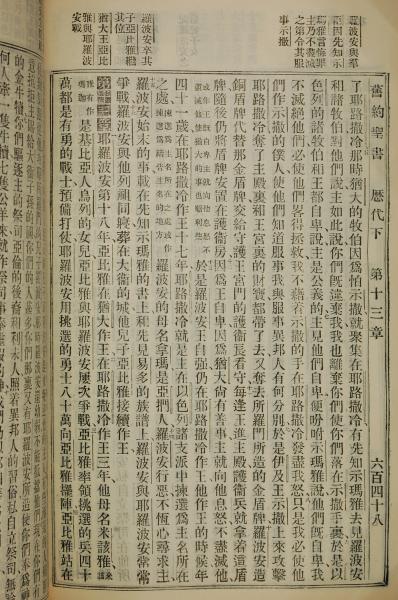 羅波安與羣
臣因先知示
瑪雅言悔罪
主乃不盡滅
之第令其服
事示撒
羅波安卒其
子亞比雅繼
其位
猶大王亞比
雅與耶羅波
安戰
舊約聖書 歷代下 第十三章 六百四十八
了耶路撒冷那時猶大的牧伯因爲怕示撒就聚集在耶路撒冷有先知示瑪雅去見羅波安
和諸牧伯對他們說主如此說你們旣違棄我我也離棄你們使你們落在示撒手裏於是以
色列的諸牧伯和王都自卑說主是公義的主見他們自卑便吩咐示瑪雅說他們旣自卑我
不滅絕他們必使他們畧得拯救我不藉着示撒的手在耶路撒冷發盡我怒只是我必使他
們作示撒的僕人使他們知道服事我與服事異邦人有何分別於是伊及王示撒上來攻擊
耶路撒冷奪了主殿裏和王宮裏的財寶都帶了去又奪去所羅門所造的金盾牌羅波安造
銅盾牌代替那金盾牌交給守護王宮門的護衛長看守每逢王進主殿護衛兵就拿着這盾
牌隨後仍將盾牌安置在護衛房因爲王自卑因爲猶大尙有善事主就向他息怒不盡滅他
於是羅波安王自强仍在耶路撒冷作王他作王的時候年
四十一歲在耶路撒冷作王十七年耶路撒冷就是主在以色列諸支派中揀選爲主名所在
之處羅波安的母名拿瑪是亞捫人羅波安行惡不恆心尋求主
羅波安始末的事載在先知示瑪雅的書上和先見易多的族譜上羅波安與耶羅波安常常
爭戰羅波安與他列祖同寢葬在大衛的城他兒子亞比雅接續作王
耶羅波安第十八年亞比雅在猶大作王在耶路撒冷作王三年他母名米該雅
是基比亞人烏列的女兒亞比雅與耶羅波安屢次爭戰亞比雅率領挑選的兵四十
萬都是有勇的戰士預備打仗耶羅波安用挑選的勇士八十萬向亞比雅擺陣亞比雅站在